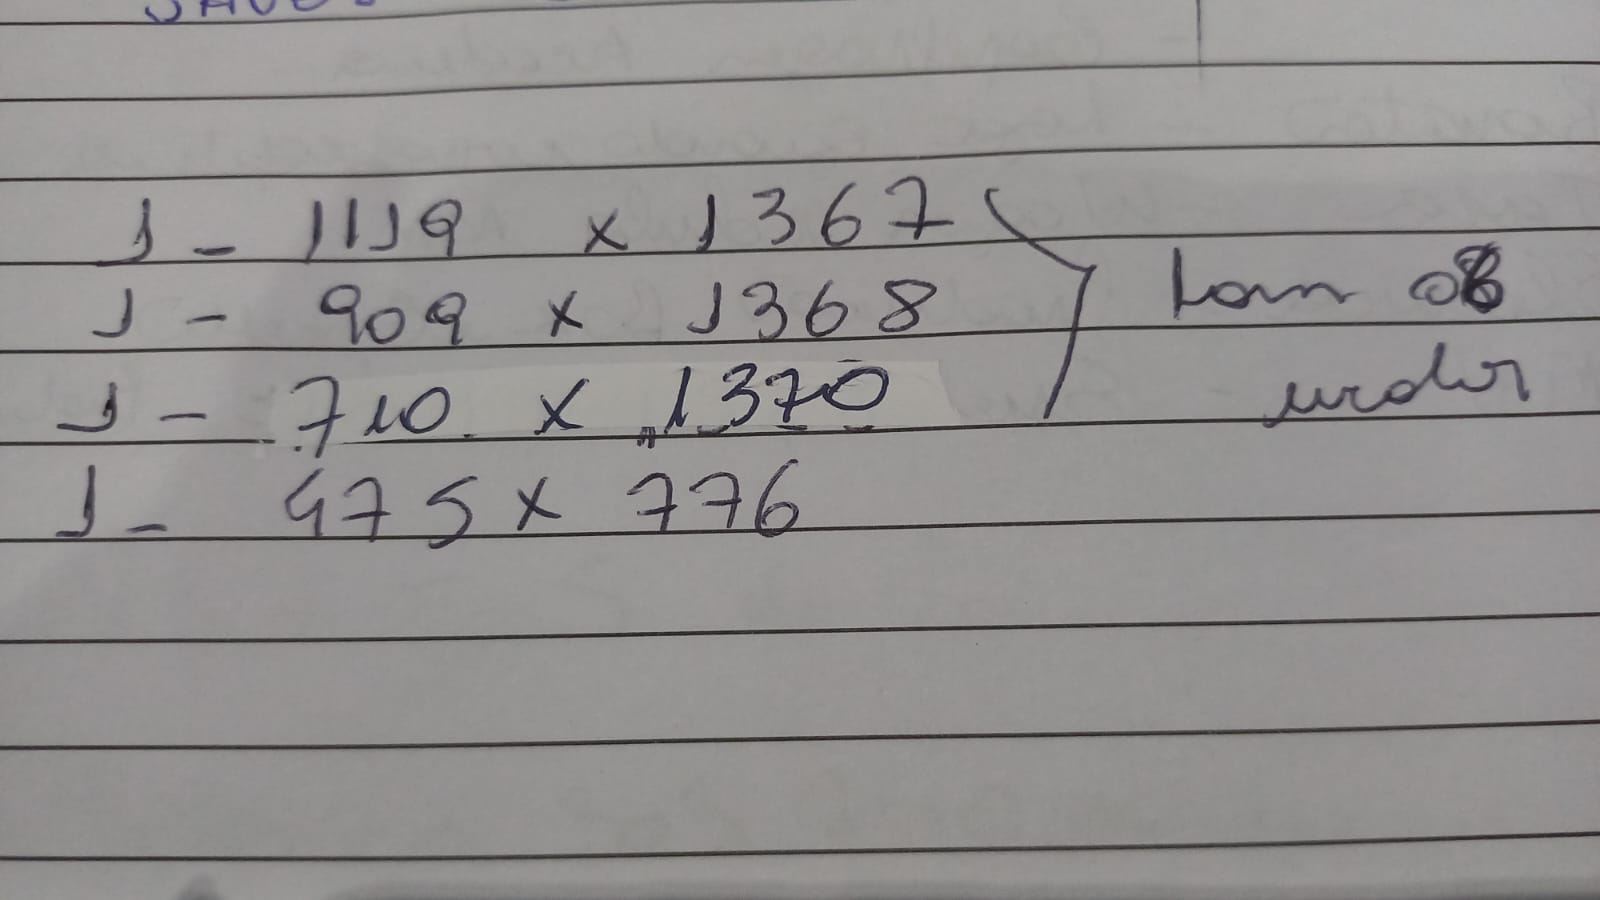 1 - 1119 x 1367
1 - 909 x 1368 } Lam 06
1 - 710 x 1370 incolor
1 - 475 x 776